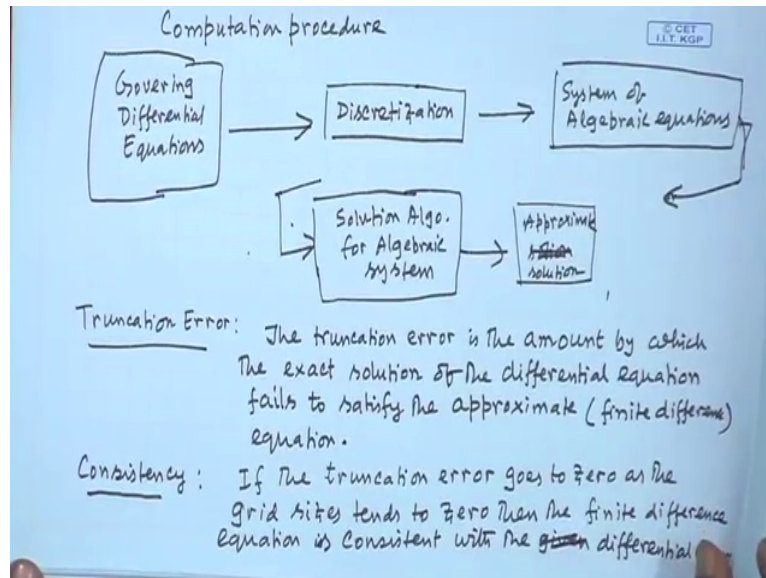 Computation procedure
© CET
I.I.T. KGP
Govering
Differential
Equations
Discretization
System of
Algebraic equations
Solution Algo.
for Algebraic
system
Approximate
solution
Truncation Error:
The truncation error is the amount by which
the exact solution of the differential equation
fails to satisfy the approximate (finite difference)
equation.
Consistency:
If the truncation error goes to zero as the
grid sizes tends to zero then the finite difference
equation is consistent with the given differential